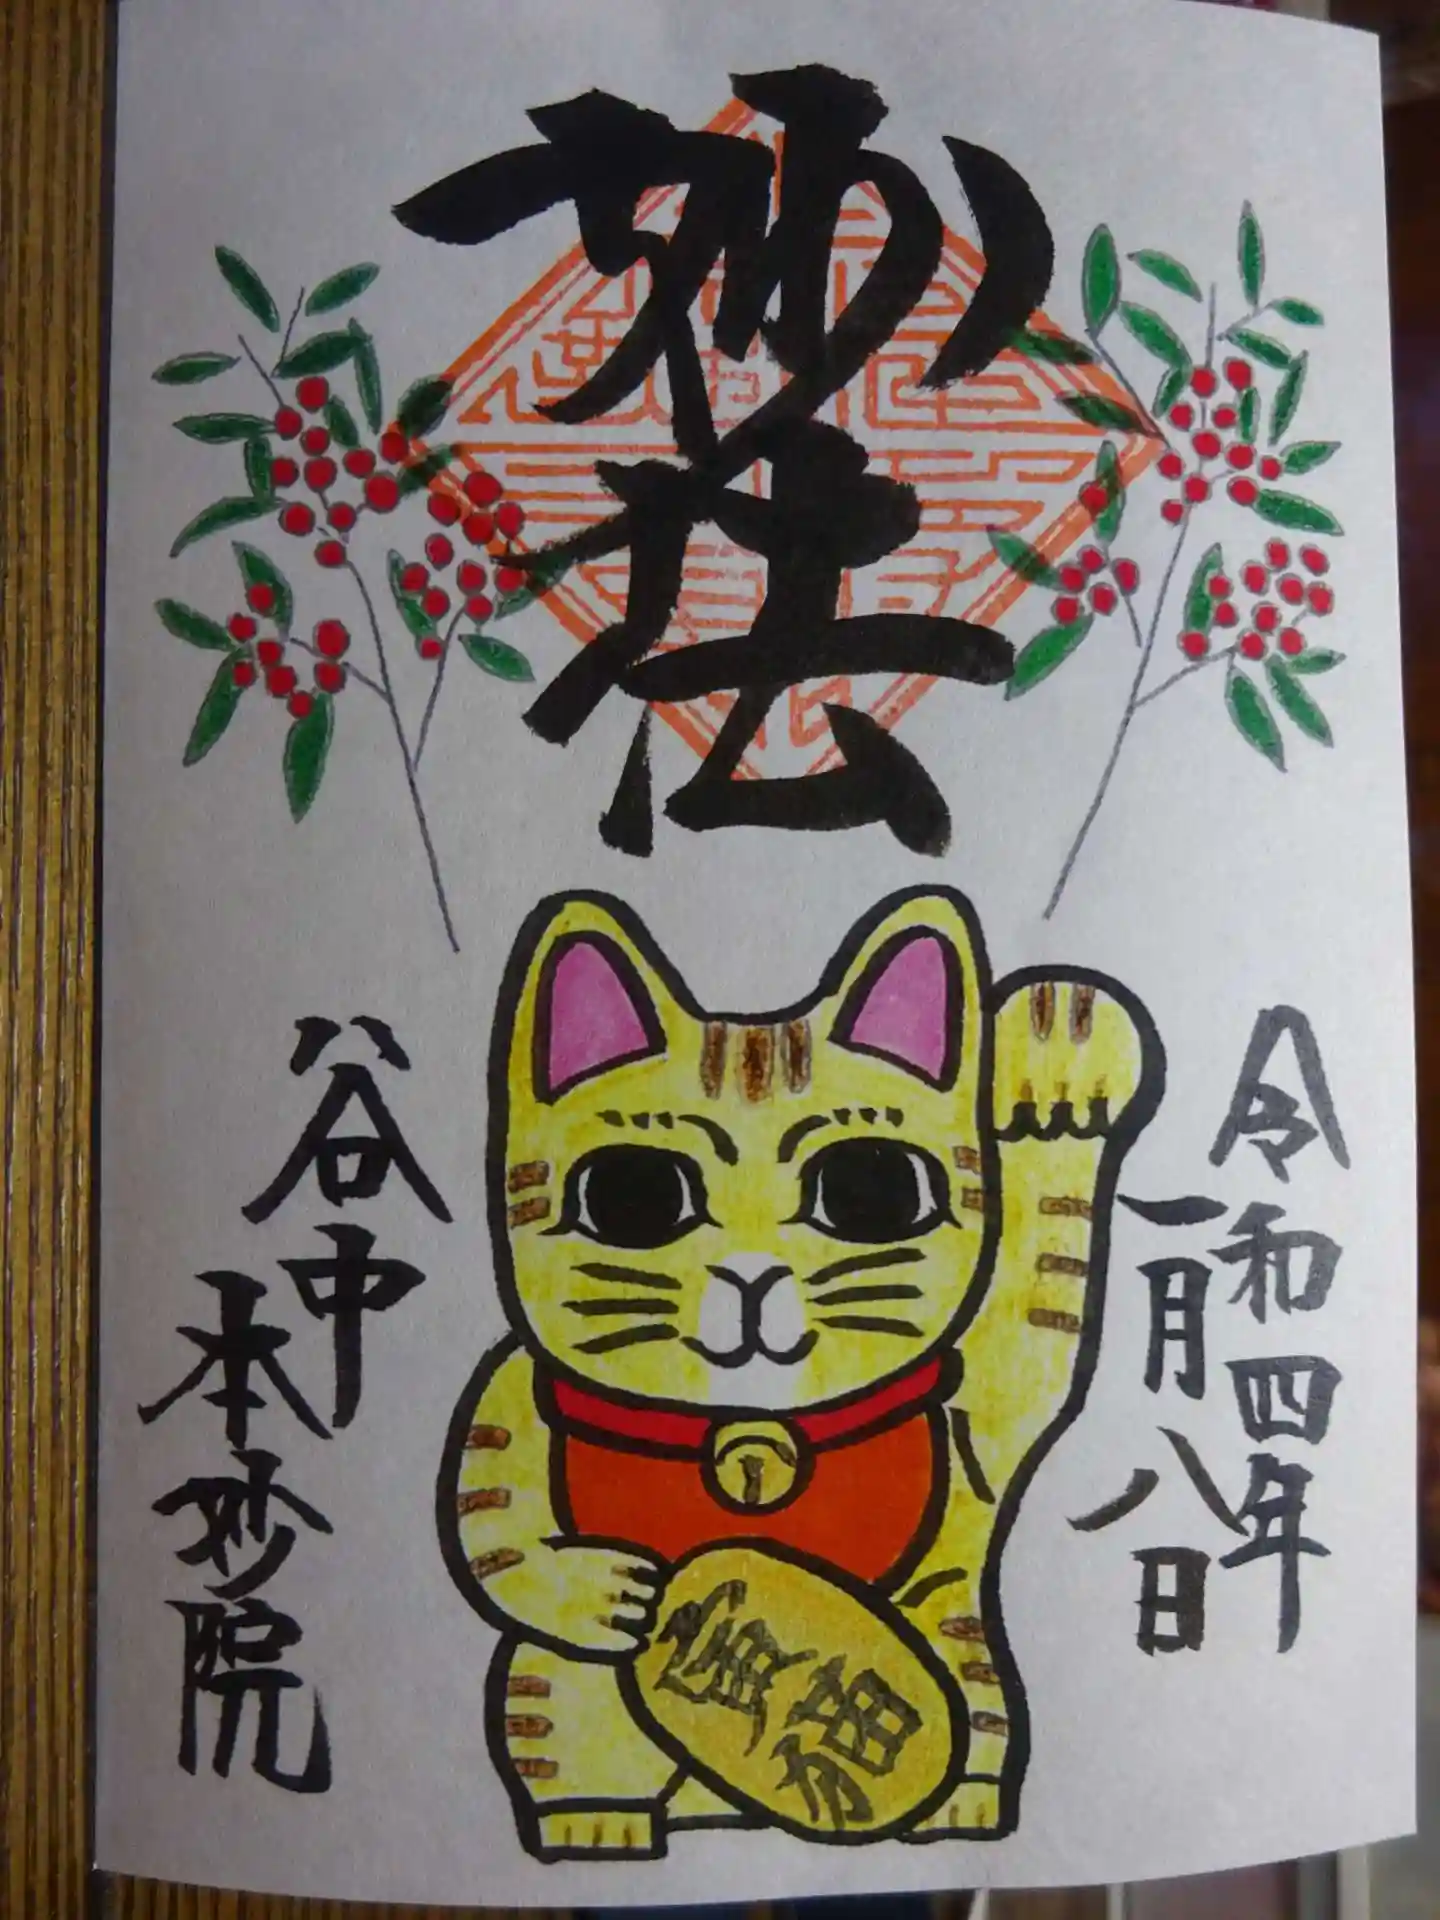 妙法
令和四年
一月八日
谷中
本妙院
寅猫